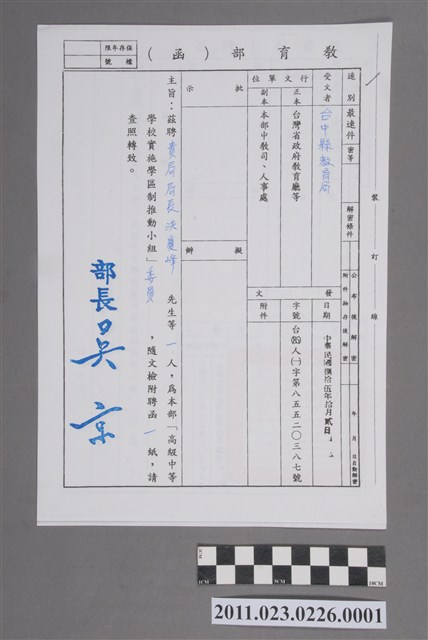 教育部（函）
保存年限
檔號
速別
最速件
密等
解密條件
公布後解密
附件抽存後解密
年 月 日自動解密
裝 訂 線
受文者
台中縣教育局
行文單位
正本
台灣省政府教育廳等
副本
本部中教司、人事處
發文
日期
中華民國捌拾伍年拾月貳日
字號
台(85)人(一)字第八五五二〇三八七號
附件
批示
擬辦
主旨：茲聘貴局局長洪慶峰 先生等一人，為本部「高級中等
學校實施學區制推動小組」委員 ，隨文檢附聘函一紙，請
查照轉致。
部長吳京
0CM
1CM
5CM
10CM
2011.023.0226.0001